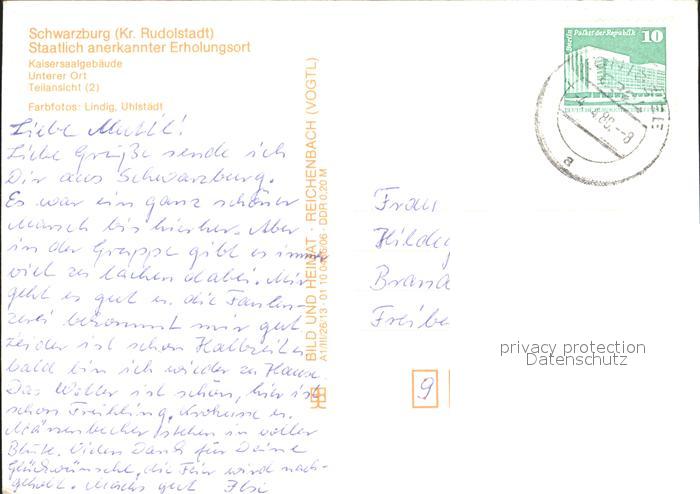 Schwarzburg (Kr. Rudolstadt)
Staatlich anerkannter Erholungsort
Kaisersaalgebäude
Unterer Ort
Teilansicht (2)
Farbfotos: Lindig, Uhlstädt
Liebe
Liebe Grüße sende ich
Dir aus Schwarzburg.
Es war ein ganz schöner
Marsch bis hierher. Aber
in der Gruppe gibt es immer
viel zu lachen dabei. Mir
geht es gut u. die Faulen-
zerei bekommt mir gut
Leider ist schon Halbzeit u.
bald bin ich wieder zu Hause.
Das Wetter ist schön, hier ist
schon Frühling. Krokusse u.
Märzenbecher stehen in voller
Blüte. Vielen Dank für Deine
Glückwünsche, die Feier wird nach-
geholt. Machs gut Ilsi
BILD UND HEIMAT · REICHENBACH (VOGTL)
A1/III/26/13 · 01 10 04 · DDR 0,20 M
Berlin Palast der Republik
10
DDR
80.-8
a
Frau
Hildeg
Brand
Freibe
9
privacy protection
Datenschutz